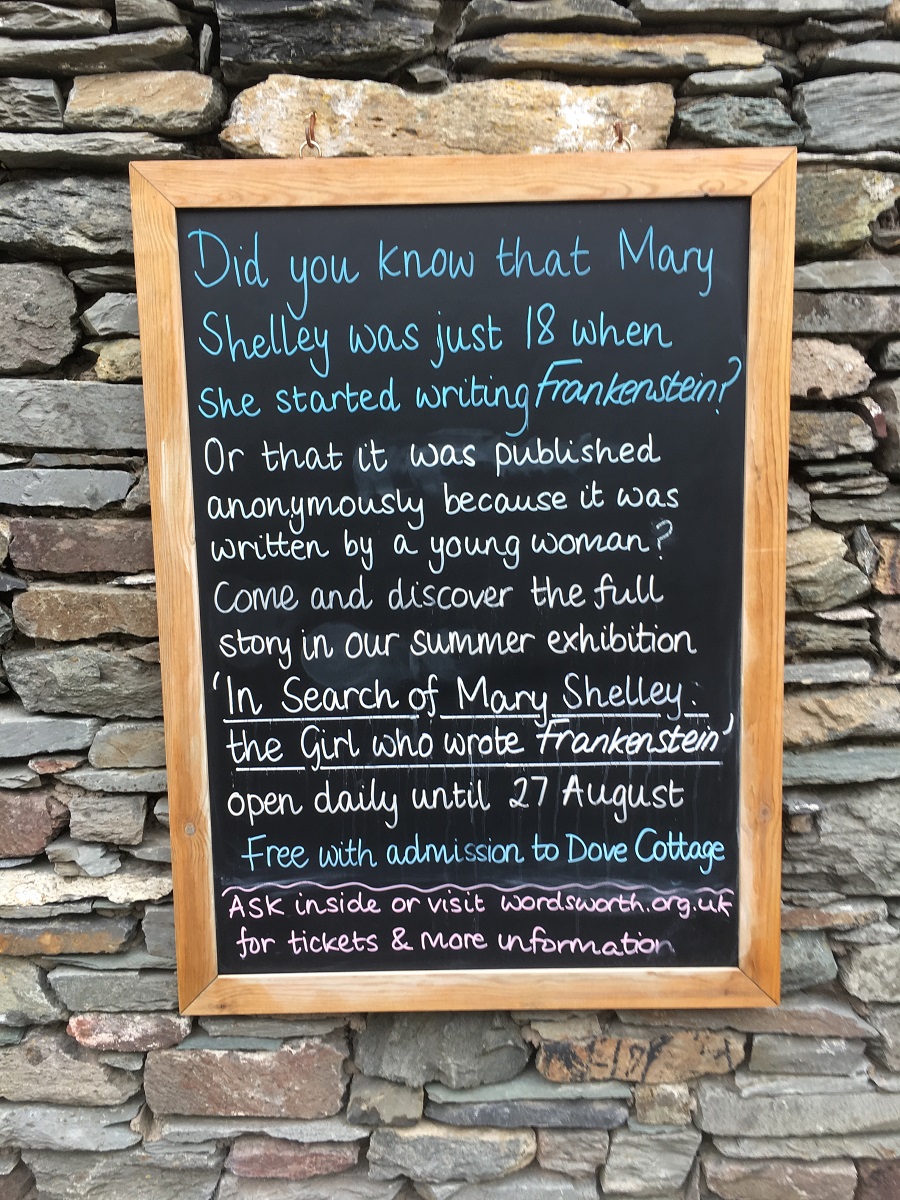 Did you know that Mary
Shelley was just 18 when
she started writing Frankenstein?
Or that it was published
anonymously because it was
written by a young woman?
Come and discover the full
story in our summer exhibition
'In Search of Mary Shelley:
the Girl who wrote Frankenstein'
open daily until 27 August
Free with admission to Dove Cottage
Ask inside or visit wordsworth.org.uk
for tickets & more information